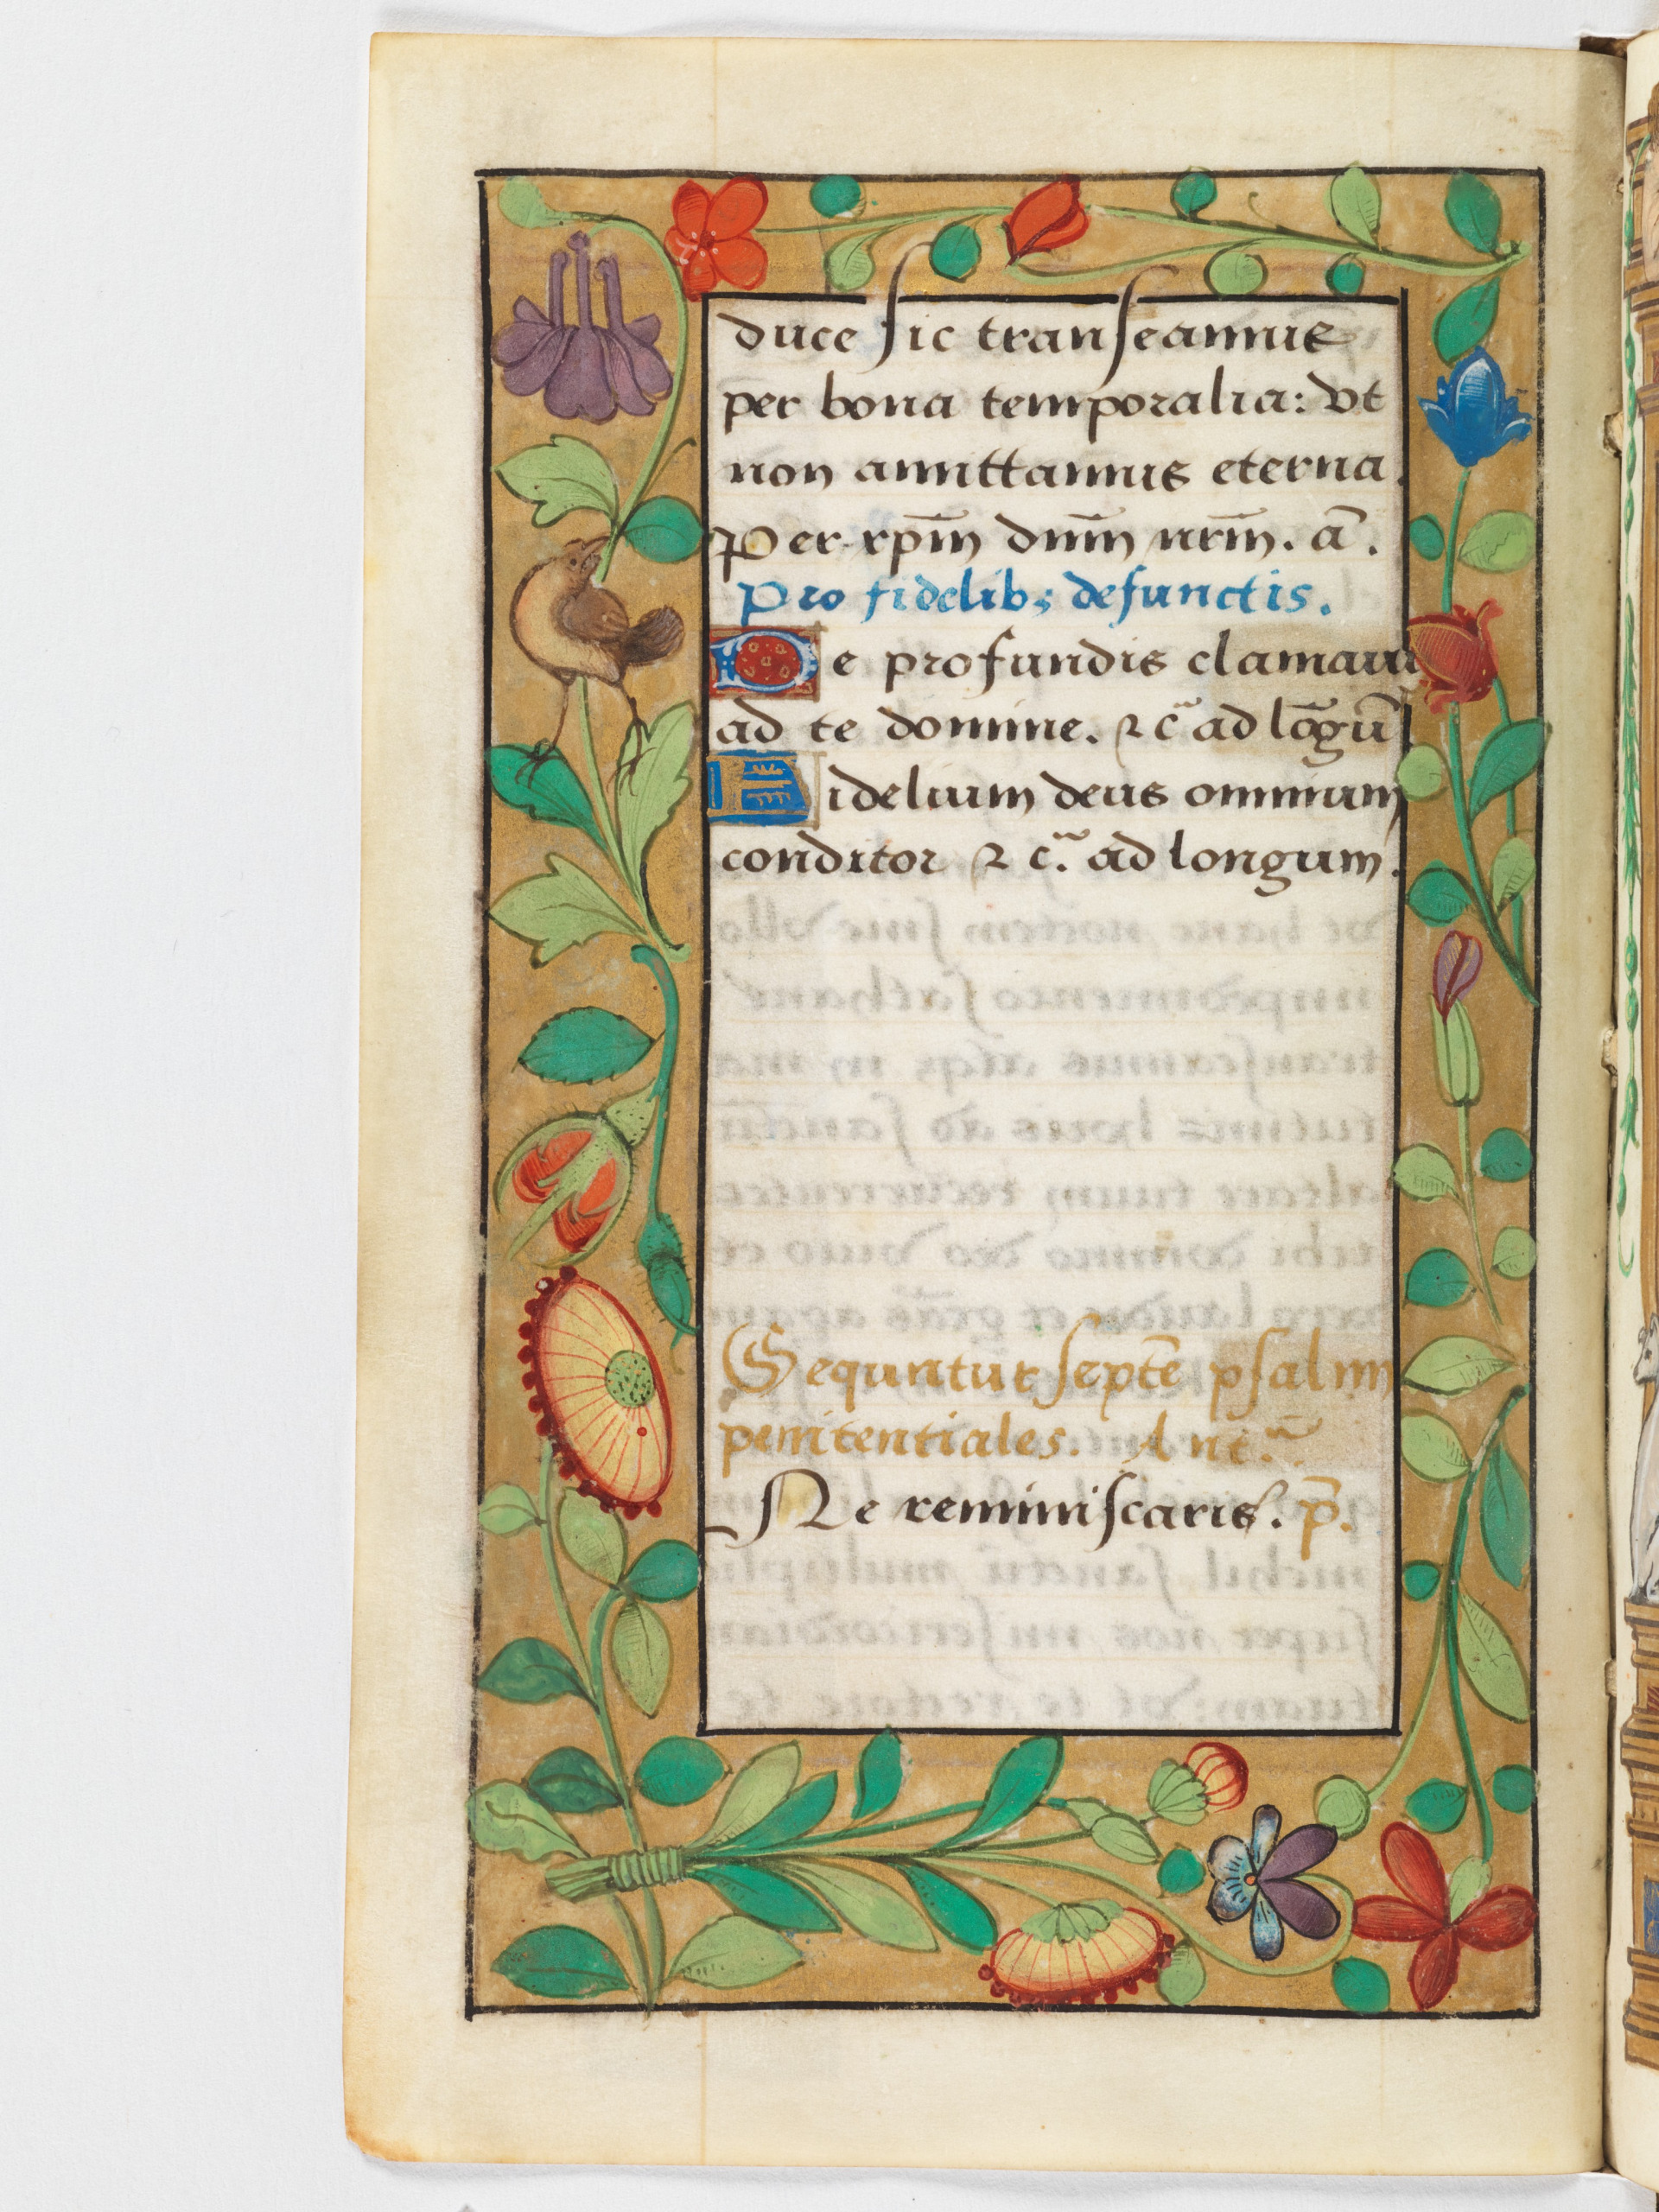 duce sic transeamus
per bona temporalia: vt
non amittamus eterna.
Per xp̄m dn̄m nr̄m. a͞.
Pro fidelibꝫ defunctis.
De profundis clamaui
ad te domine. ⁊ c̃ ad lōgū
Fidelium deus omnium
conditor ⁊ c̃. ad longum.
Sequntur septē psalmi
penitentiales. Ant̃.
Ne reminiscaris. p̄.